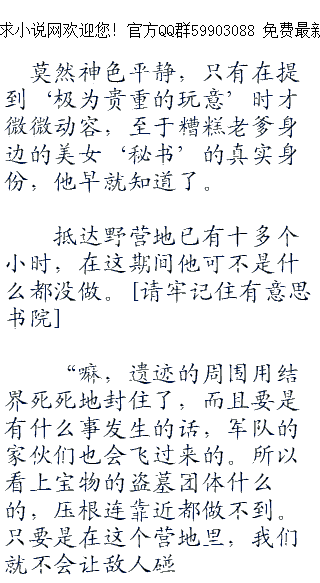 求小说网欢迎您！官方QQ群59903088 免费最新
莫然神色平静，只有在提
到‘极为贵重的玩意’时才
微微动容，至于糟糕老爹身
边的美女‘秘书’的真实身
份，他早就知道了。
抵达野营地已有十多个
小时，在这期间他可不是什
么都没做。[请牢记住有意思
书院]
“嘛，遗迹的周围用结
界死死地封住了，而且要是
有什么事发生的话，军队的
家伙们也会飞过来的。所以
看上宝物的盗墓团体什么
的，压根连靠近都做不到。
只要是在这个营地里，我们
就不会让敌人碰